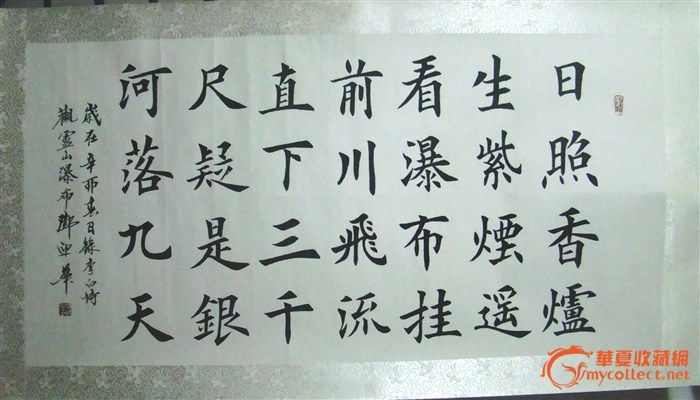 日照香爐
生紫煙遥
看瀑布挂
前川飛流
直下三千
尺疑是銀
河落九天
歲在辛卯春日錄李白詩
觀山瀑布鄧迎華
華夏收藏網
mycollect.net